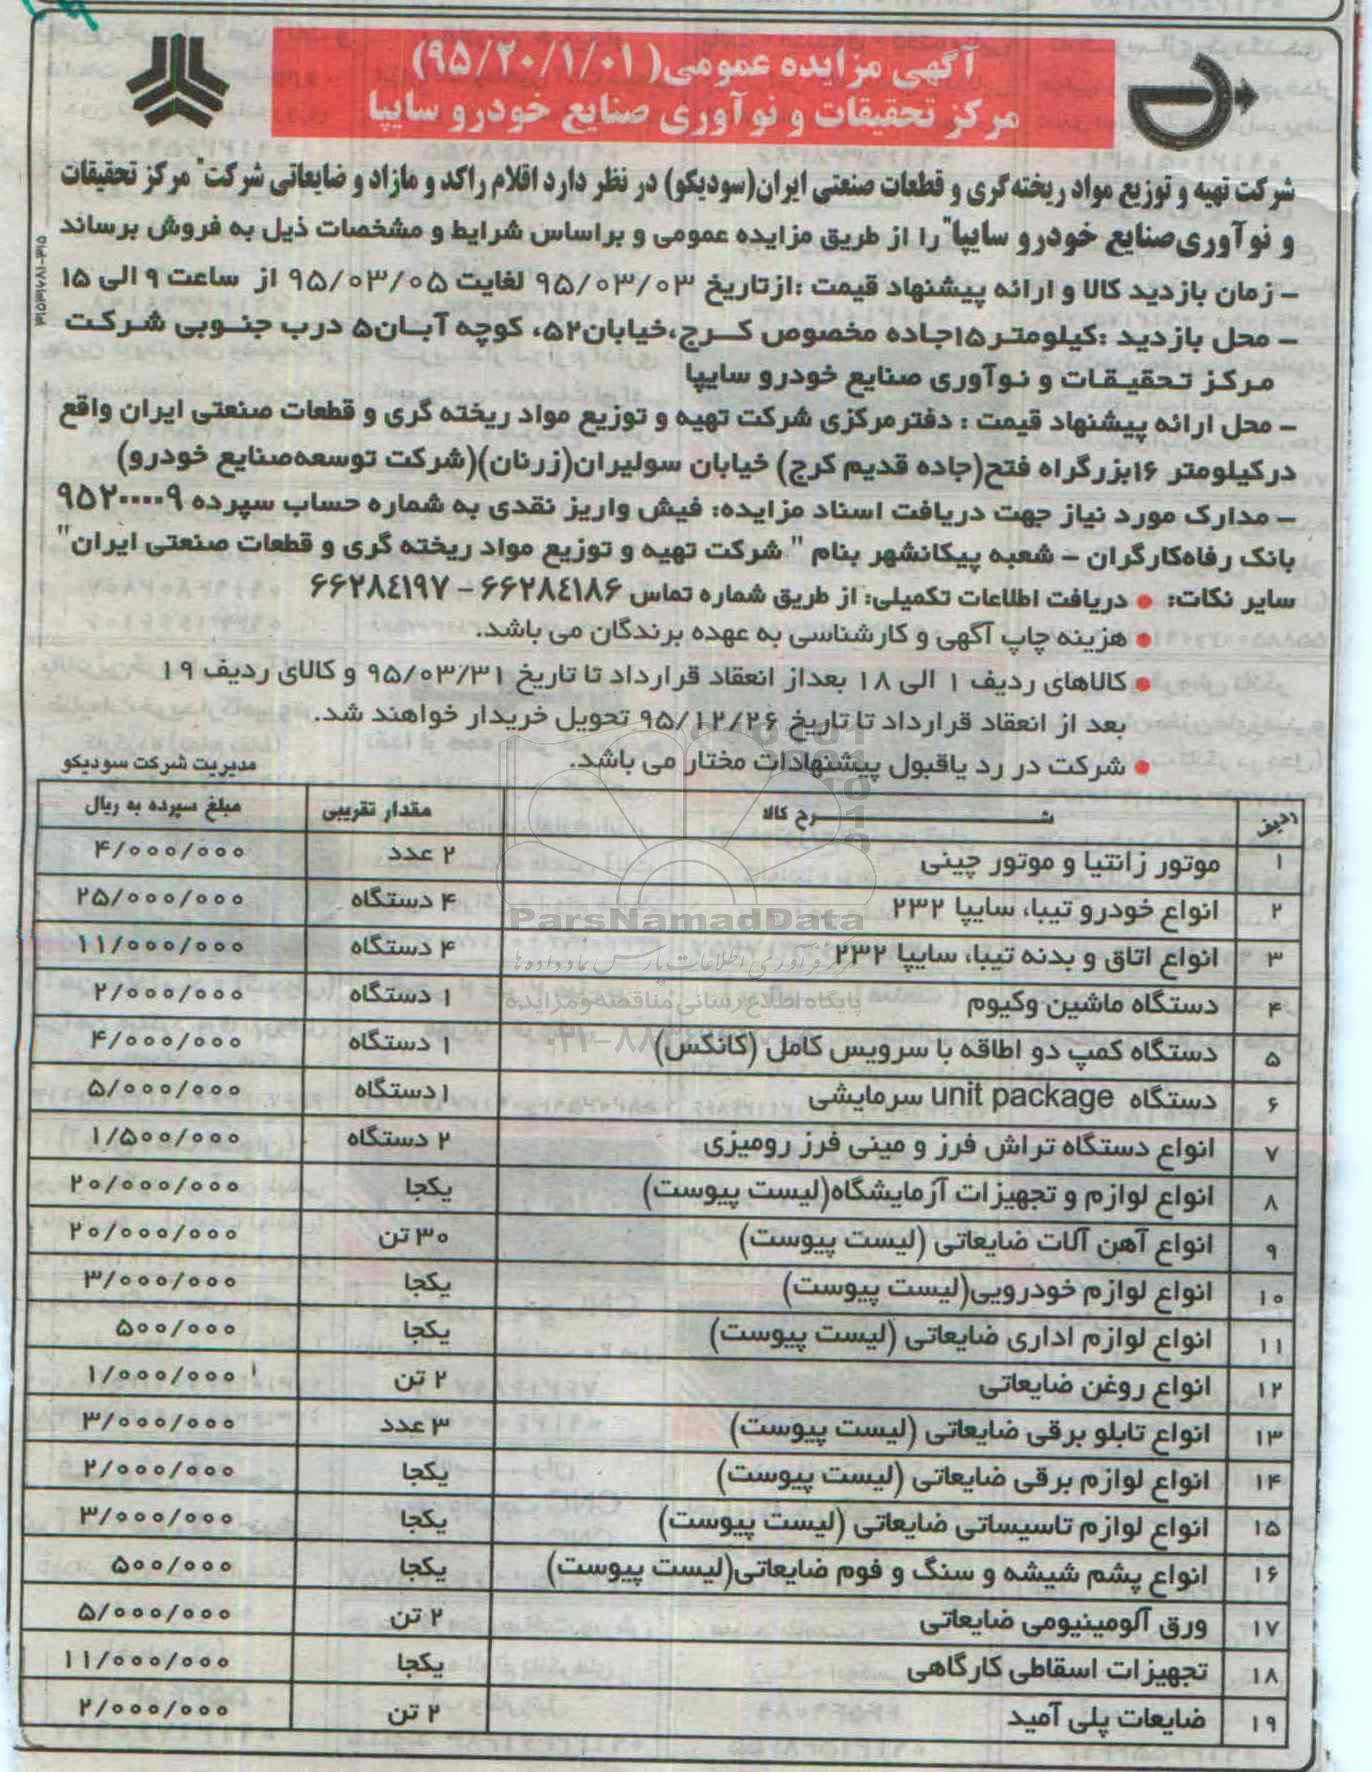 آگهی مزایده عمومی (۹۵/۲۰/۱/۰۱)
مرکز تحقیقات و نوآوری صنایع خودرو سایپا
شرکت تهیه و توزیع مواد ریخته گری و قطعات صنعتی ایران(سودیکو) در نظر دارد اقلام راکد و مازاد و ضایعاتی شرکت" مرکز تحقیقات
و نوآوری صنایع خودرو سایپا" را از طریق مزایده عمومی و براساس شرایط و مشخصات ذیل به فروش برساند
- زمان بازدید کالا و ارائه پیشنهاد قیمت :ازتاریخ ۹۵/۰۳/۰۳ لغایت ۹۵/۰۳/۰۵ از ساعت ۹ الی ۱۵
- محل بازدید :کیلومتر۱۵جاده مخصوص کرج،خیابان۵۲، کوچه آبان۵ درب جنوبی شرکت
مرکز تحقیقات و نوآوری صنایع خودرو سایپا
- محل ارائه پیشنهاد قیمت : دفترمرکزی شرکت تهیه و توزیع مواد ریخته گری و قطعات صنعتی ایران واقع
درکیلومتر ۱۶بزرگراه فتح(جاده قدیم کرج) خیابان سولیران(زرنان)(شرکت توسعه‌صنایع خودرو)
- مدارک مورد نیاز جهت دریافت اسناد مزایده: فیش واریز نقدی به شماره حساب سپرده ۹۵۲۰۰۰۰۹
بانک رفاه‌کارگران - شعبه پیکانشهر بنام " شرکت تهیه و توزیع مواد ریخته گری و قطعات صنعتی ایران"
سایر نکات: • دریافت اطلاعات تکمیلی: از طریق شماره تماس ۶۶۲۸۴۱۸۶ - ۶۶۲۸۴۱۹۷
• هزینه چاپ آگهی و کارشناسی به عهده برندگان می باشد.
• کالاهای ردیف ۱ الی ۱۸ بعداز انعقاد قرارداد تا تاریخ ۹۵/۰۳/۳۱ و کالای ردیف ۱۹
بعد از انعقاد قرارداد تا تاریخ ۹۵/۱۲/۲۶ تحویل خریدار خواهند شد.
• شرکت در رد یاقبول پیشنهادات مختار می باشد.
مدیریت شرکت سودیکو
ردیف شرح کالا مقدار تقریبی مبلغ سپرده به ریال
۱ موتور زانتیا و موتور چینی ۲ عدد ۴/۰۰۰/۰۰۰
۲ انواع خودرو تیبا، سایپا ۲۳۲ ۴ دستگاه ۲۵/۰۰۰/۰۰۰
۳ انواع اتاق و بدنه تیبا، سایپا ۲۳۲ ۴ دستگاه ۱۱/۰۰۰/۰۰۰
۴ دستگاه ماشین وکیوم ۱ دستگاه ۲/۰۰۰/۰۰۰
۵ دستگاه کمپ دو اطاقه با سرویس کامل (کانکس) ۱ دستگاه ۴/۰۰۰/۰۰۰
۶ دستگاه unit package سرمایشی ۱ دستگاه ۵/۰۰۰/۰۰۰
۷ انواع دستگاه تراش فرز و مینی فرز رومیزی ۲ دستگاه ۱/۵۰۰/۰۰۰
۸ انواع لوازم و تجهیزات آزمایشگاه(لیست پیوست) یکجا ۲۰/۰۰۰/۰۰۰
۹ انواع آهن آلات ضایعاتی (لیست پیوست) ۳۰ تن ۲۰/۰۰۰/۰۰۰
۱۰ انواع لوازم خودرویی(لیست پیوست) یکجا ۳/۰۰۰/۰۰۰
۱۱ انواع لوازم اداری ضایعاتی (لیست پیوست) یکجا ۵۰۰/۰۰۰
۱۲ انواع روغن ضایعاتی ۲ تن ۱/۰۰۰/۰۰۰
۱۳ انواع تابلو برقی ضایعاتی (لیست پیوست) ۳ عدد ۳/۰۰۰/۰۰۰
۱۴ انواع لوازم برقی ضایعاتی (لیست پیوست) یکجا ۲/۰۰۰/۰۰۰
۱۵ انواع لوازم تاسیساتی ضایعاتی (لیست پیوست) یکجا ۳/۰۰۰/۰۰۰
۱۶ انواع پشم شیشه و سنگ و فوم ضایعاتی(لیست پیوست) یکجا ۵۰۰/۰۰۰
۱۷ ورق آلومینیومی ضایعاتی ۲ تن ۵/۰۰۰/۰۰۰
۱۸ تجهیزات اسقاطی کارگاهی یکجا ۱۱/۰۰۰/۰۰۰
۱۹ ضایعات پلی آمید ۲ تن ۲/۰۰۰/۰۰۰
ParsNamadData
پایگاه اطلاع رسانی مناقصه و مزایده